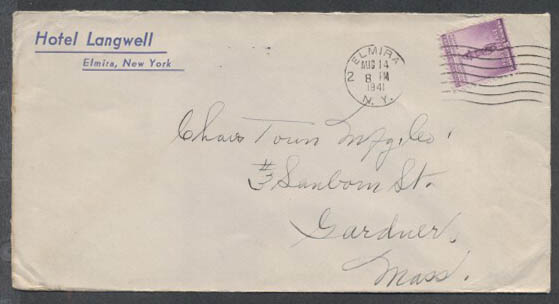 Hotel Langwell
Elmira, New York
ELMIRA
AUG 14
8 PM
1941
N. Y.
2
Chair Town Mfg. Co.
#3 Sanborn St.
Gardner,
Mass.